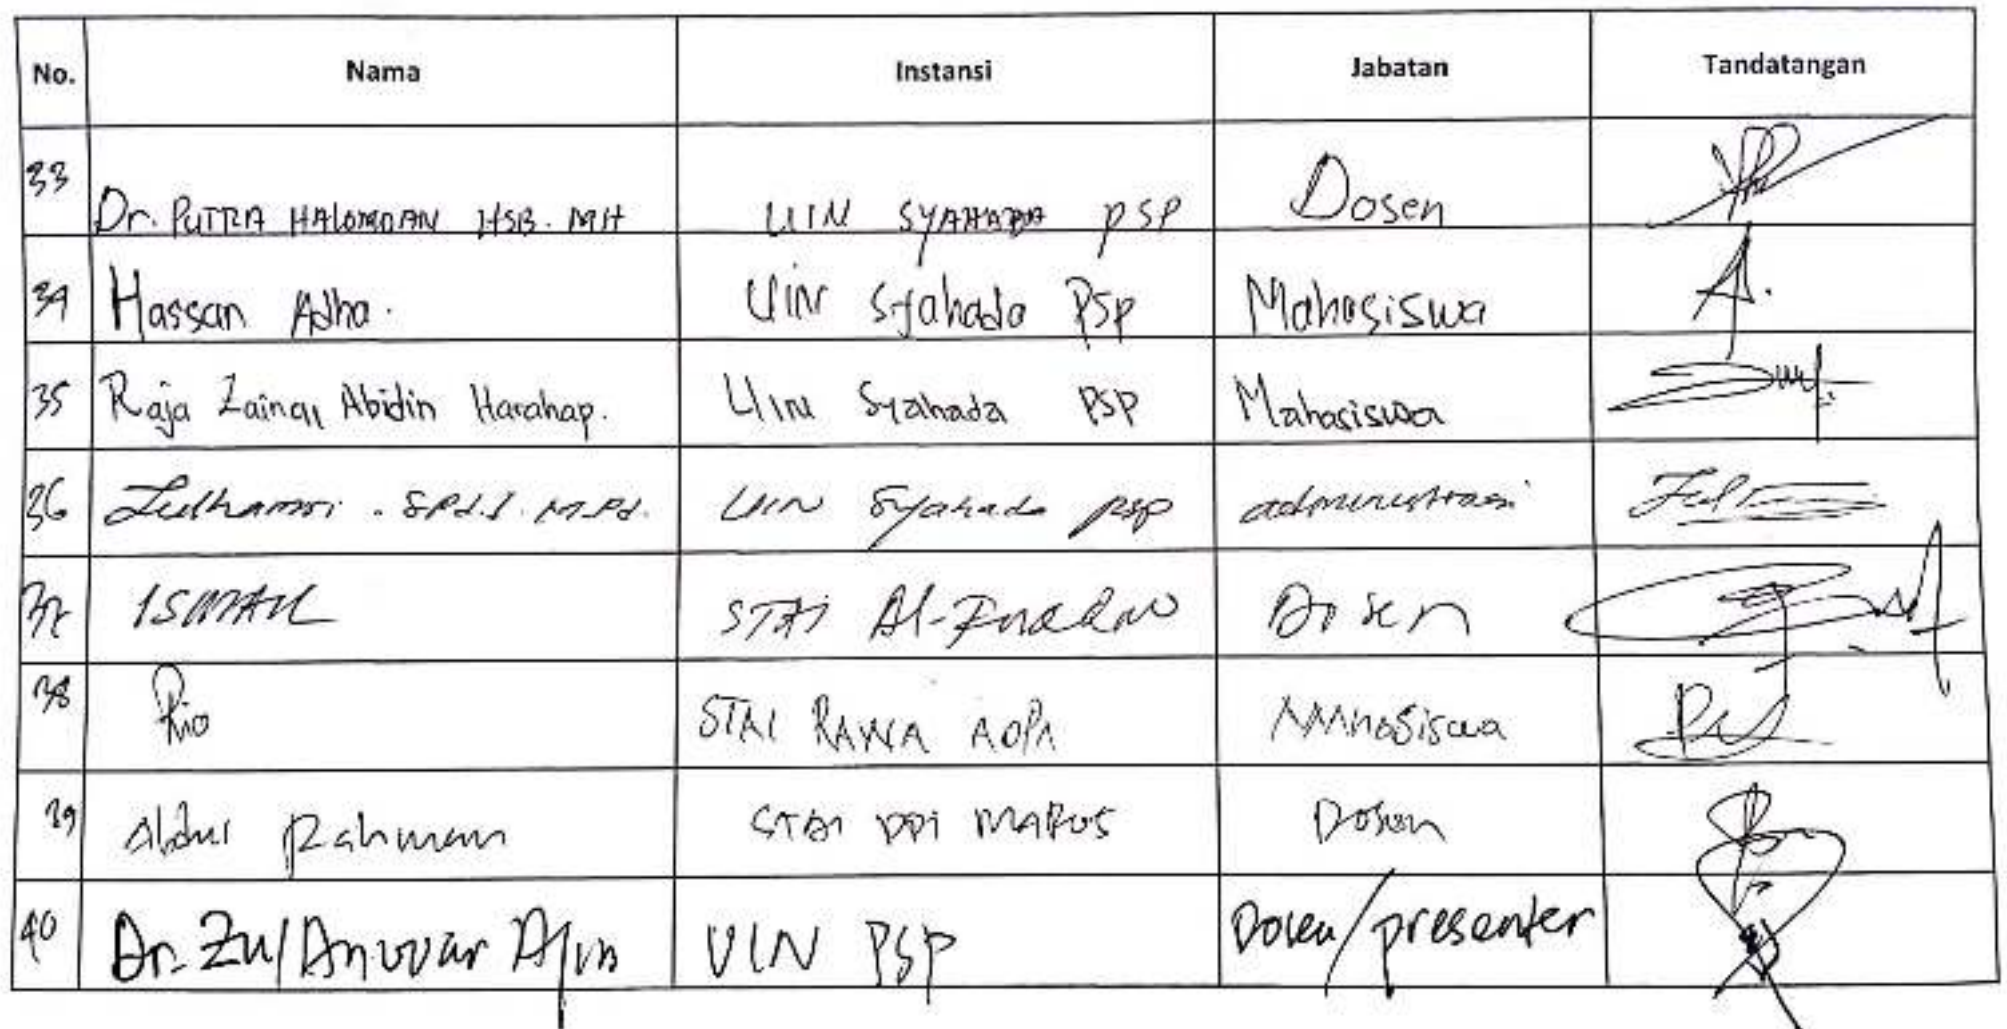 No. Nama Instansi Jabatan Tandatangan
33 Dr. PUTRA HALOMOAN HSB. MH UIN SYAHADA PSP Dosen
34 Hassan Adha. UIN Syahada PSP Mahasiswa
35 Raja Zainal Abidin Harahap. UIN Syahada PSP Mahasiswa
36 Zulhamri. S.Pd.I. M.Pd. UIN Syahada PSP administrasi
37 ISMAIL STAI Al-Furqan Dosen
38 Rio STAI RAWA AOPA Mahasiswa
39 Abdul Rahman STAI DDI MAROS Dosen
40 Dr. Zul Anwar Ajim UIN PSP Dosen/presenter